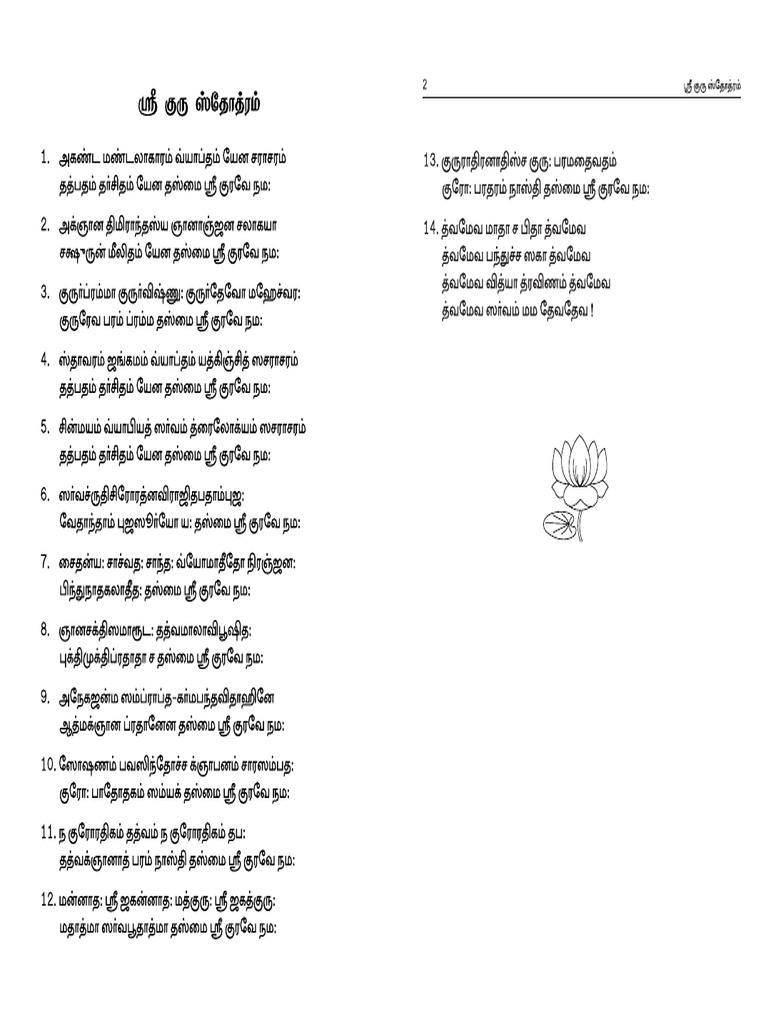 ஸ்ரீ குரு ஸ்தோத்ரம்
1. அகண்ட மண்டலாகாரம் வ்யாப்தம் யேன சராசரம்
தத்பதம் தர்சிதம் யேன தஸ்மை ஸ்ரீ குரவே நம:
2. அக்ஞான திமிராந்தஸ்ய ஞானாஞ்ஜன சலாகயா
சக்ஷுருன் மீலிதம் யேன தஸ்மை ஸ்ரீ குரவே நம:
3. குருர்ப்ரம்மா குருர்விஷ்ணு: குருர்தேவோ மஹேச்வர:
குருரேவ பரம் ப்ரம்ம தஸ்மை ஸ்ரீ குரவே நம:
4. ஸ்தாவரம் ஜங்கமம் வ்யாப்தம் யத்கிஞ்சித் ஸசராசரம்
தத்பதம் தர்சிதம் யேன தஸ்மை ஸ்ரீ குரவே நம:
5. சின்மயம் வ்யாபியத் ஸர்வம் த்ரைலோக்யம் ஸசராசரம்
தத்பதம் தர்சிதம் யேன தஸ்மை ஸ்ரீ குரவே நம:
6. ஸர்வச்ருதிசிரோரத்னவிராஜிதபதாம்புஜ:
வேதாந்தாம் புஜஸூர்யோ ய: தஸ்மை ஸ்ரீ குரவே நம:
7. சைதன்ய: சாச்வத: சாந்த: வ்யோமாதீதோ நிரஞ்ஜன:
பிந்துநாதகலாதீத: தஸ்மை ஸ்ரீ குரவே நம:
8. ஞானசக்திஸமாரூட: தத்வமாலாவிபூஷித:
புக்திமுக்திப்ரதாதா ச தஸ்மை ஸ்ரீ குரவே நம:
9. அநேகஜன்ம ஸம்ப்ராப்த-கர்மபந்தவிதாஹினே
ஆத்மக்ஞான ப்ரதானேன தஸ்மை ஸ்ரீ குரவே நம:
10. ஸோஷணம் பவஸிந்தோச்ச க்ஞாபனம் சாரஸம்பத:
குரோ: பாதோதகம் ஸம்யக் தஸ்மை ஸ்ரீ குரவே நம:
11. ந குரோரதிகம் தத்வம் ந குரோரதிகம் தப:
தத்வக்ஞானாத் பரம் நாஸ்தி தஸ்மை ஸ்ரீ குரவே நம:
12. மன்னாத: ஸ்ரீ ஜகன்னாத: மத்குரு: ஸ்ரீ ஜகத்குரு:
மதாத்மா ஸர்வபூதாத்மா தஸ்மை ஸ்ரீ குரவே நம:
2 ஸ்ரீ குரு ஸ்தோத்ரம்
13. குருராதிரனாதிஸ்ச குரு: பரமதைவதம்
குரோ: பரதரம் நாஸ்தி தஸ்மை ஸ்ரீ குரவே நம:
14. த்வமேவ மாதா ச பிதா த்வமேவ
த்வமேவ பந்துச்ச ஸகா த்வமேவ
த்வமேவ வித்யா த்ரவிணம் த்வமேவ
த்வமேவ ஸர்வம் மம தேவதேவ !